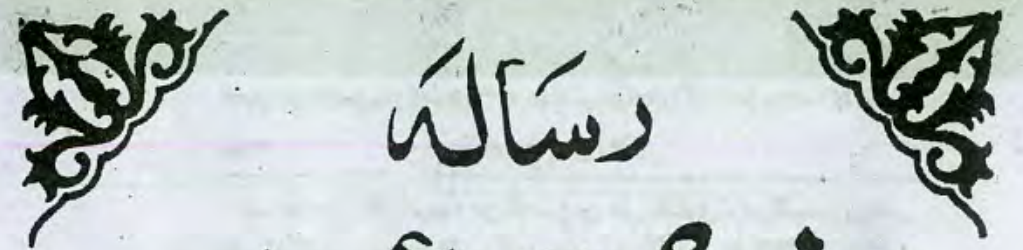 رسَالَہ